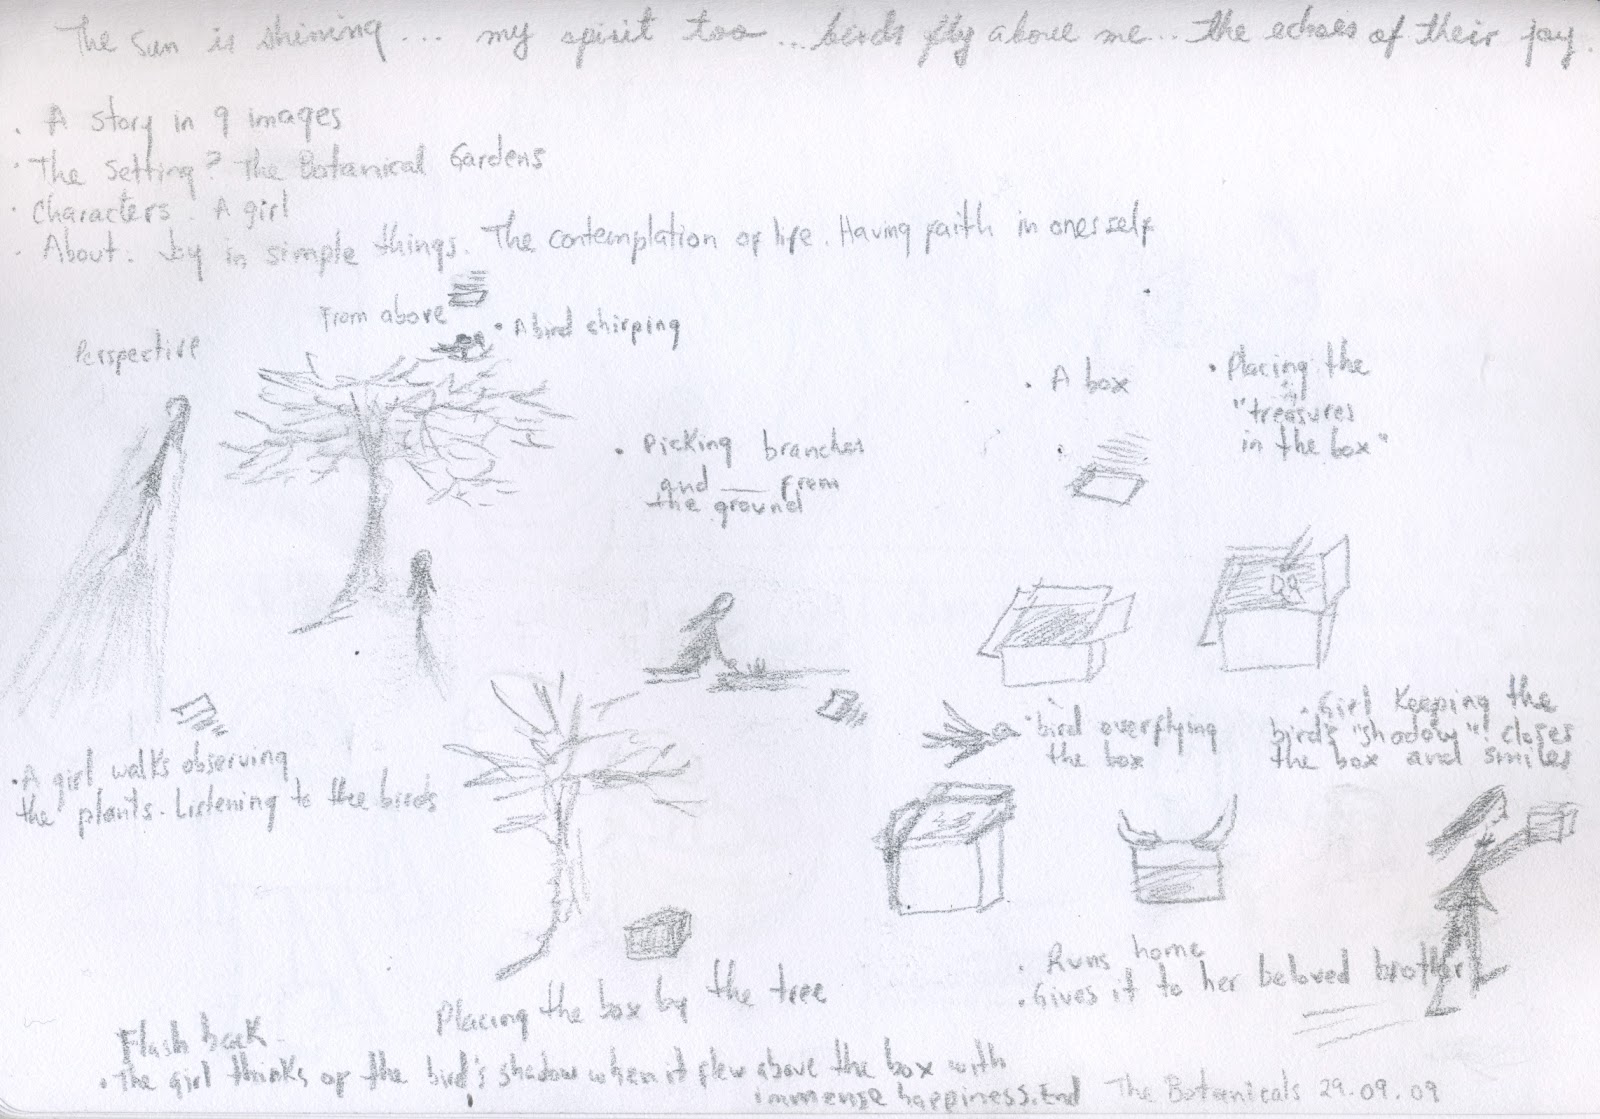 The Sun is shining... my spirit too... birds fly above me... the echoes of their joy.
. A story in 9 images
. The Setting? The Botanical Gardens
. Characters. A girl
. About. Joy in simple things. The contemplation of life. Having faith in oneself
From above
. A bird chirping
Perspective
. A box
. Placing the
"treasures
in the box"
. Picking branches
and ___ from
the ground
. A girl walks observing
the plants. Listening to the birds
. bird overflying
the box
. Girl Keeping the
bird's "shadow" closes
the box and smiles
Placing the box by the tree
. Runs home
. Gives it to her beloved brother
Flash back
. The girl thinks of the bird's shadow when it flew above the box with
immense happiness. End
The Botanicals 29.09.09